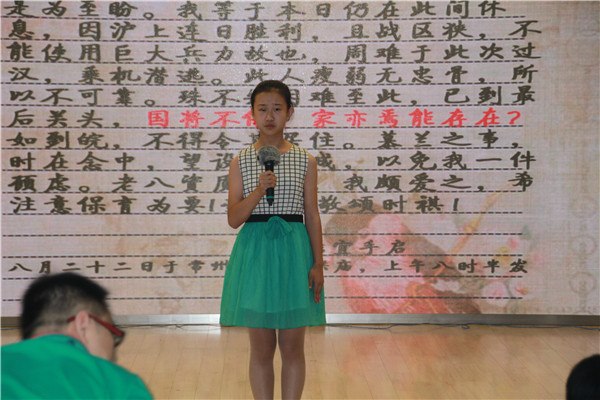 是为至盼。我等于本日仍在此间休
息，因沪上连日胜利，且战区秩，不
能使用巨大兵力故也，周难于此次过
汉，乘机潜逃。此人瘦弱无忠骨，所
以不可靠。殊不 困难至此，已到最
后关头，国将不 家亦焉能存在？
如到皖，不得令 保住。慕兰之事，
时在念中，望设 或，以免我一件
顾虑。老八资质 我颇爱之，希
注意保育为要！ 敬颂时祺！
宣手启
八月二十二日于常州 庙，上午八时半发